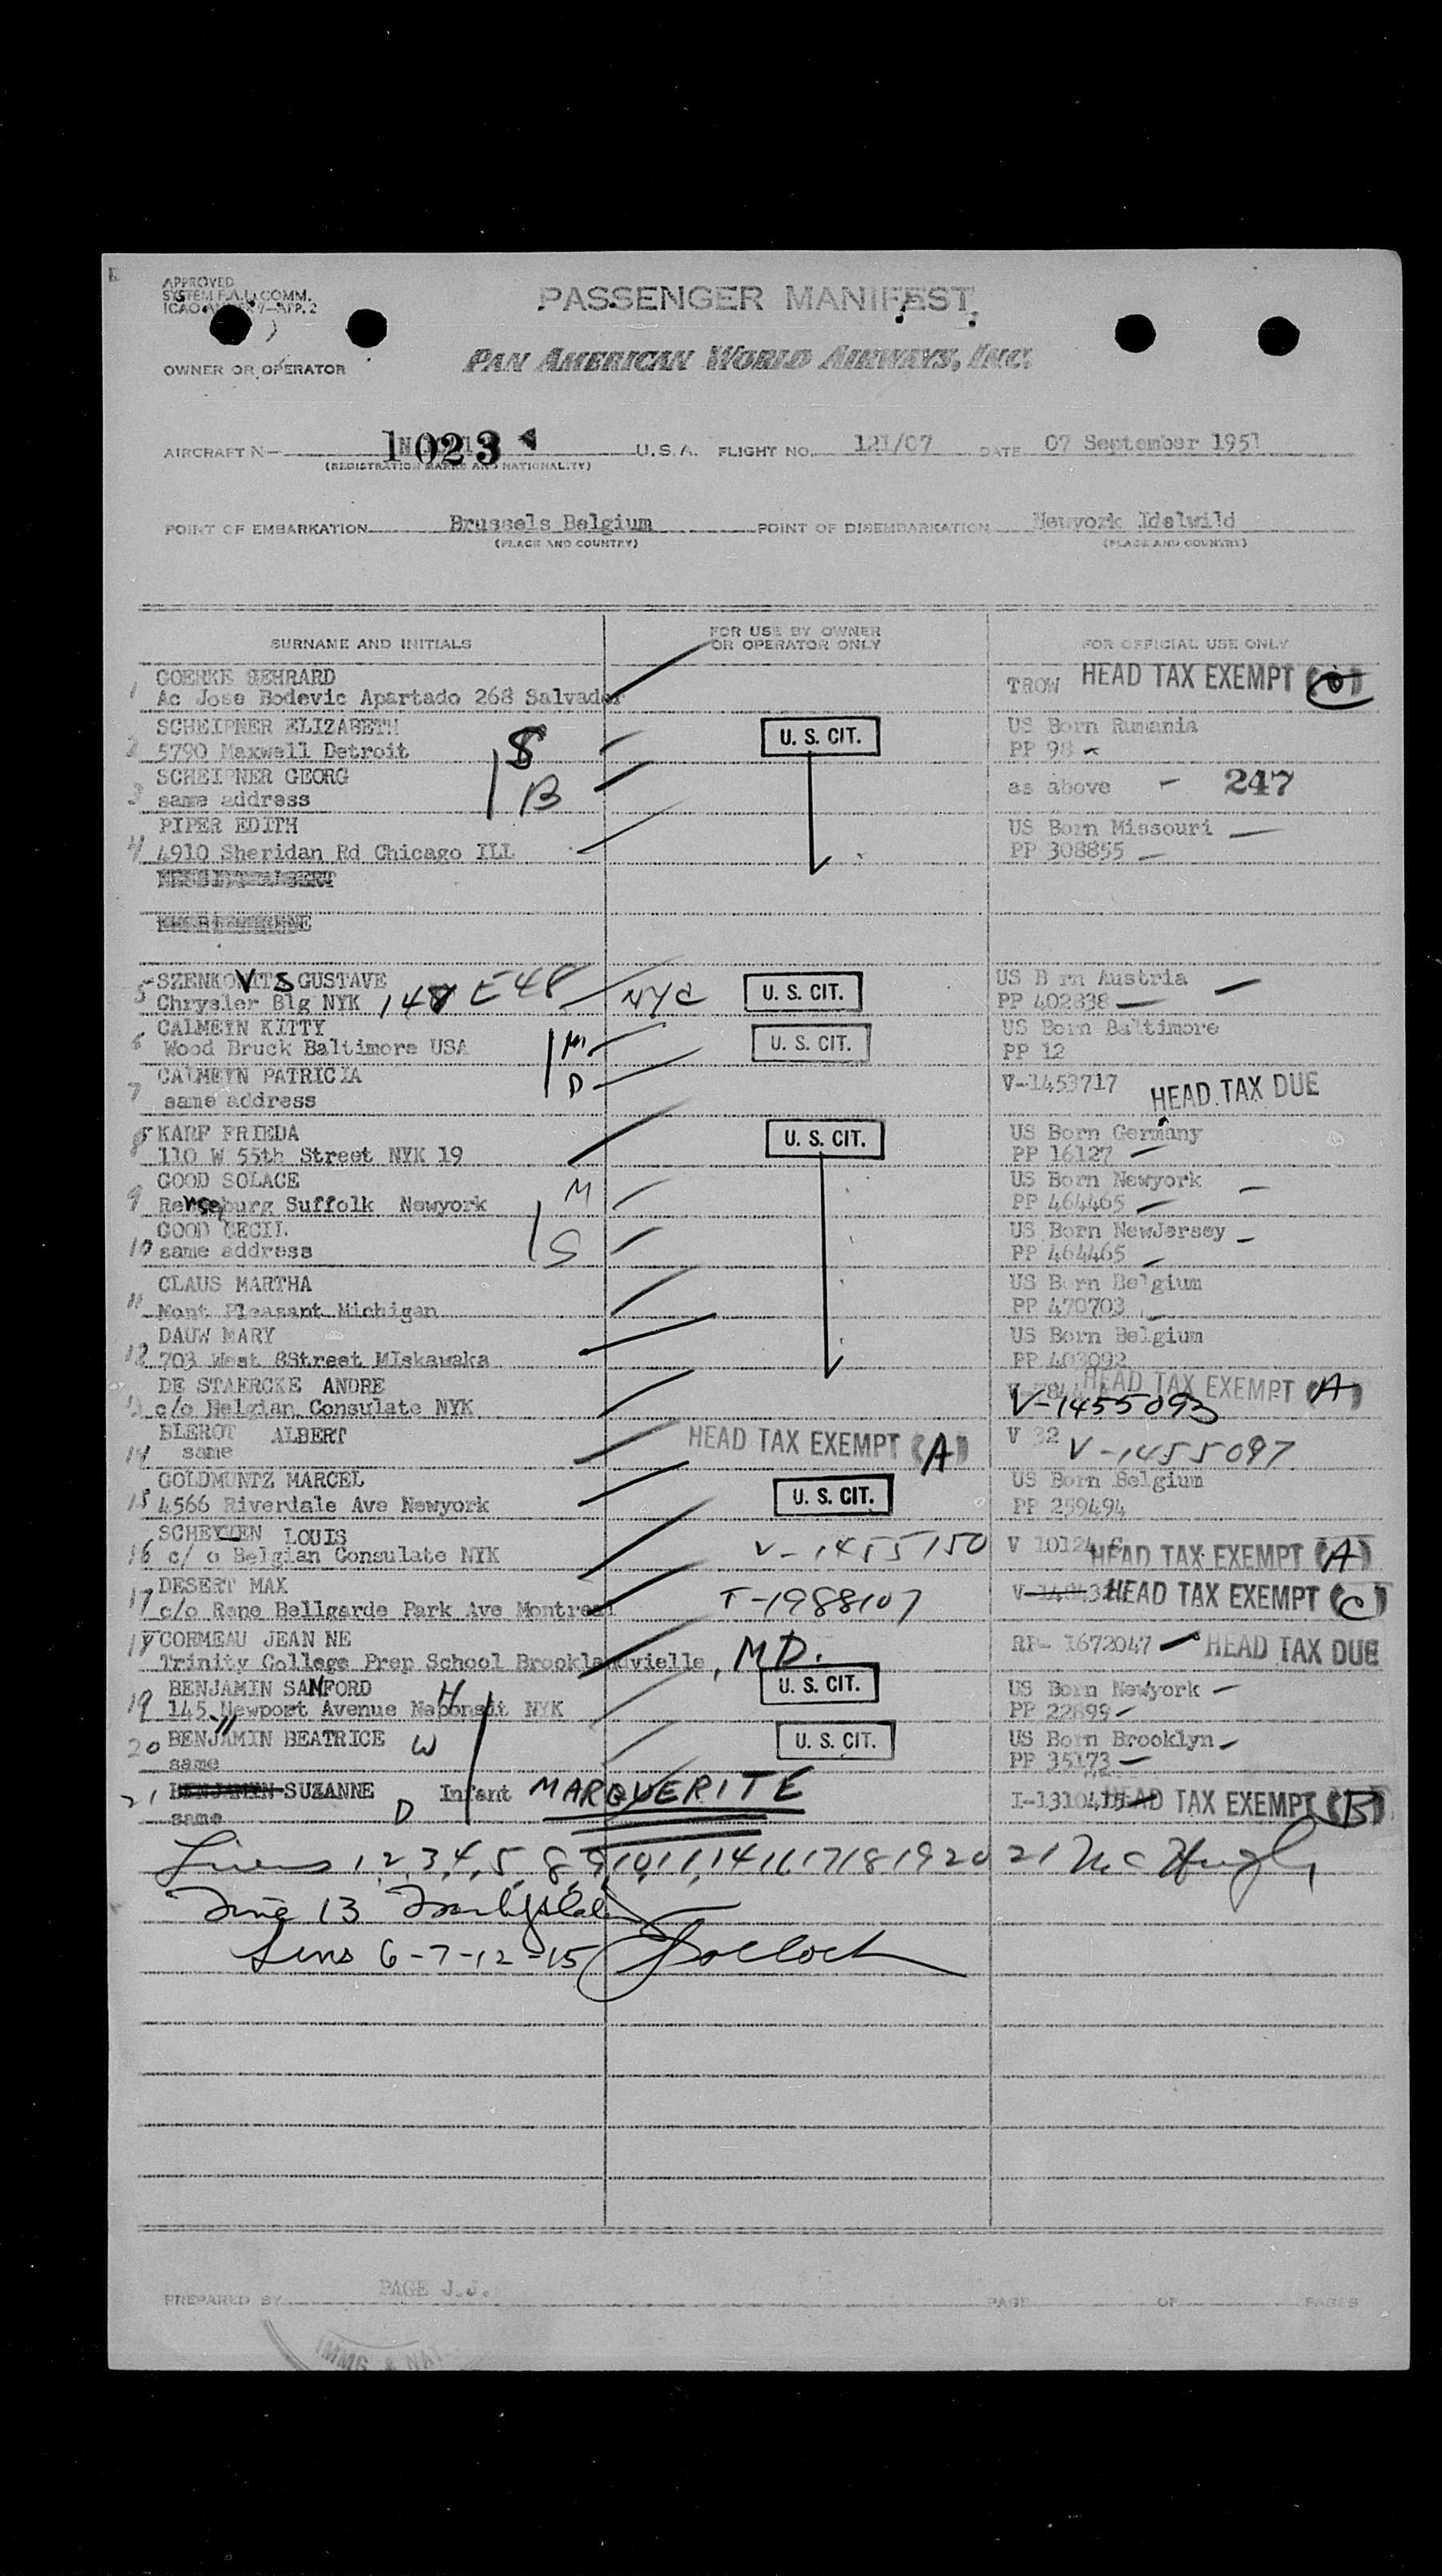 APPROVED
SYSTEM F.A.L. COMM.
PASSENGER MANIFEST
PAN AMERICAN WORLD AIRWAYS, INC.
OWNER OR OPERATOR
AIRCRAFT N— 1023 U.S.A. FLIGHT NO. 121/07 DATE 07 September 1951
(REGISTRATION MARKS AND NATIONALITY)
POINT OF EMBARKATION Brussels Belgium POINT OF DISEMBARKATION Newyork Idelwild
(PLACE AND COUNTRY) (PLACE AND COUNTRY)
SURNAME AND INITIALS FOR USE BY OWNER OR OPERATOR ONLY FOR OFFICIAL USE ONLY
1 GOERKE GEHRARD
Ac Jose Bodevic Apartado 268 Salvador TROW HEAD TAX EXEMPT
2 SCHEIPNER ELIZABETH S U. S. CIT. US Born Rumania
5790 Maxwell Detroit PP 98
3 SCHEIPNER GEORG B
same address as above - 247
4 PIPER EDITH US Born Missouri
4910 Sheridan Rd Chicago ILL PP 308855
5 SZENKOVITS GUSTAVE US Born Austria
Chrysler Blg NYK 148 E 48 NYC U. S. CIT. PP 402838
6 CALMEYN KITTY M U. S. CIT. US Born Baltimore
Wood Bruck Baltimore USA PP 12
7 CALMEYN PATRICIA D V-1453717 HEAD TAX DUE
same address
8 KARP FRIEDA U. S. CIT. US Born Germany
110 W 55th Street NYK 19 PP 16127
9 GOOD SOLACE M US Born Newyork
Remsenburg Suffolk Newyork PP 464465
10 GOOD CECIL S US Born NewJersey
same address PP 464465
11 CLAUS MARTHA US Born Belgium
Mont Pleasant Michigan PP 470703
12 DAUW MARY US Born Belgium
703 West 8Street MIskawaka PP 403092
13 DE STAERCKE ANDRE HEAD TAX EXEMPT (A)
c/o Belgian Consulate NYK V-1455093
14 BLEROT ALBERT HEAD TAX EXEMPT (A) V 32 V-1455097
same
15 GOLDMUNTZ MARCEL U. S. CIT. US Born Belgium
4566 Riverdale Ave Newyork PP 259494
16 SCHEYVEN LOUIS V-1455150 HEAD TAX EXEMPT (A)
c/ o Belgian Consulate NYK
17 DESERT MAX T-1988107 HEAD TAX EXEMPT (C)
c/o Rene Bellgarde Park Ave Montreal
18 CORMEAU JEAN NE RP- 1672047 HEAD TAX DUE
Trinity College Prep School Brooklandvielle, MD.
19 BENJAMIN SANFORD H U. S. CIT. US Born Newyork
145 Newport Avenue Neponsit NYK PP 22899
20 BENJAMIN BEATRICE W U. S. CIT. US Born Brooklyn
same PP 35173
21 BENJAMIN SUZANNE Infant MARGUERITE HEAD TAX EXEMPT (B)
same D
Lines 1 2, 3, 4, 5, 8, 9, 10, 11, 14 16 17 18 19 20 21 McHugh
Line 13
Lines 6-7-12-15 Pollock
PREPARED BY PAGE J.J. PAGE OF PAGES
IMMG & NAT